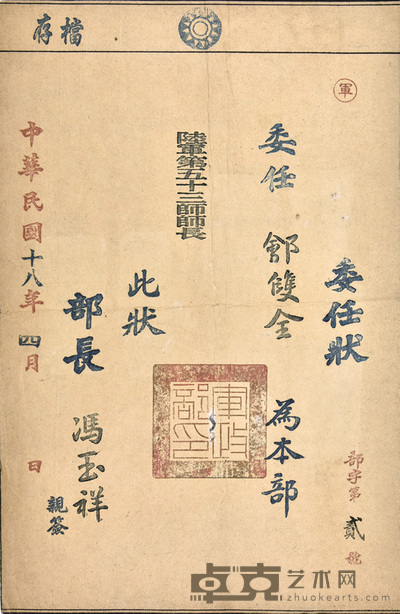 檔存
軍
委任狀
部字第貳號
委任 鄒雙全 為本部
陸軍第五十三師師長
此狀
部長 馮玉祥 親簽
中華民國十八年四月 日
軍政部印
卓克艺术网
www.zhuokearts.com